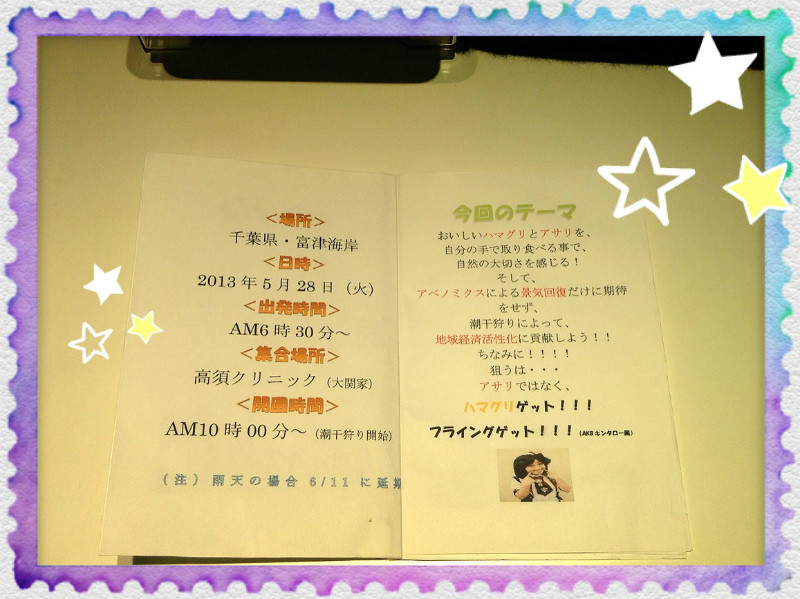 ＜場所＞
千葉県・富津海岸
＜日時＞
2013年5月28日（火）
＜出発時間＞
AM6時30分～
＜集合場所＞
高須クリニック（大関家）
＜開園時間＞
AM10時00分～（潮干狩り開始）
（注）雨天の場合 6/11に延期
今回のテーマ
おいしいハマグリとアサリを、
自分の手で取り食べる事で、
自然の大切さを感じる！
そして、
アベノミクスによる景気回復だけに期待
をせず、
潮干狩りによって、
地域経済活性化に貢献しよう！！
ちなみに！！！！
狙うは・・・
アサリではなく、
ハマグリゲット！！！
フライングゲット！！！（AKBキンタロー風）